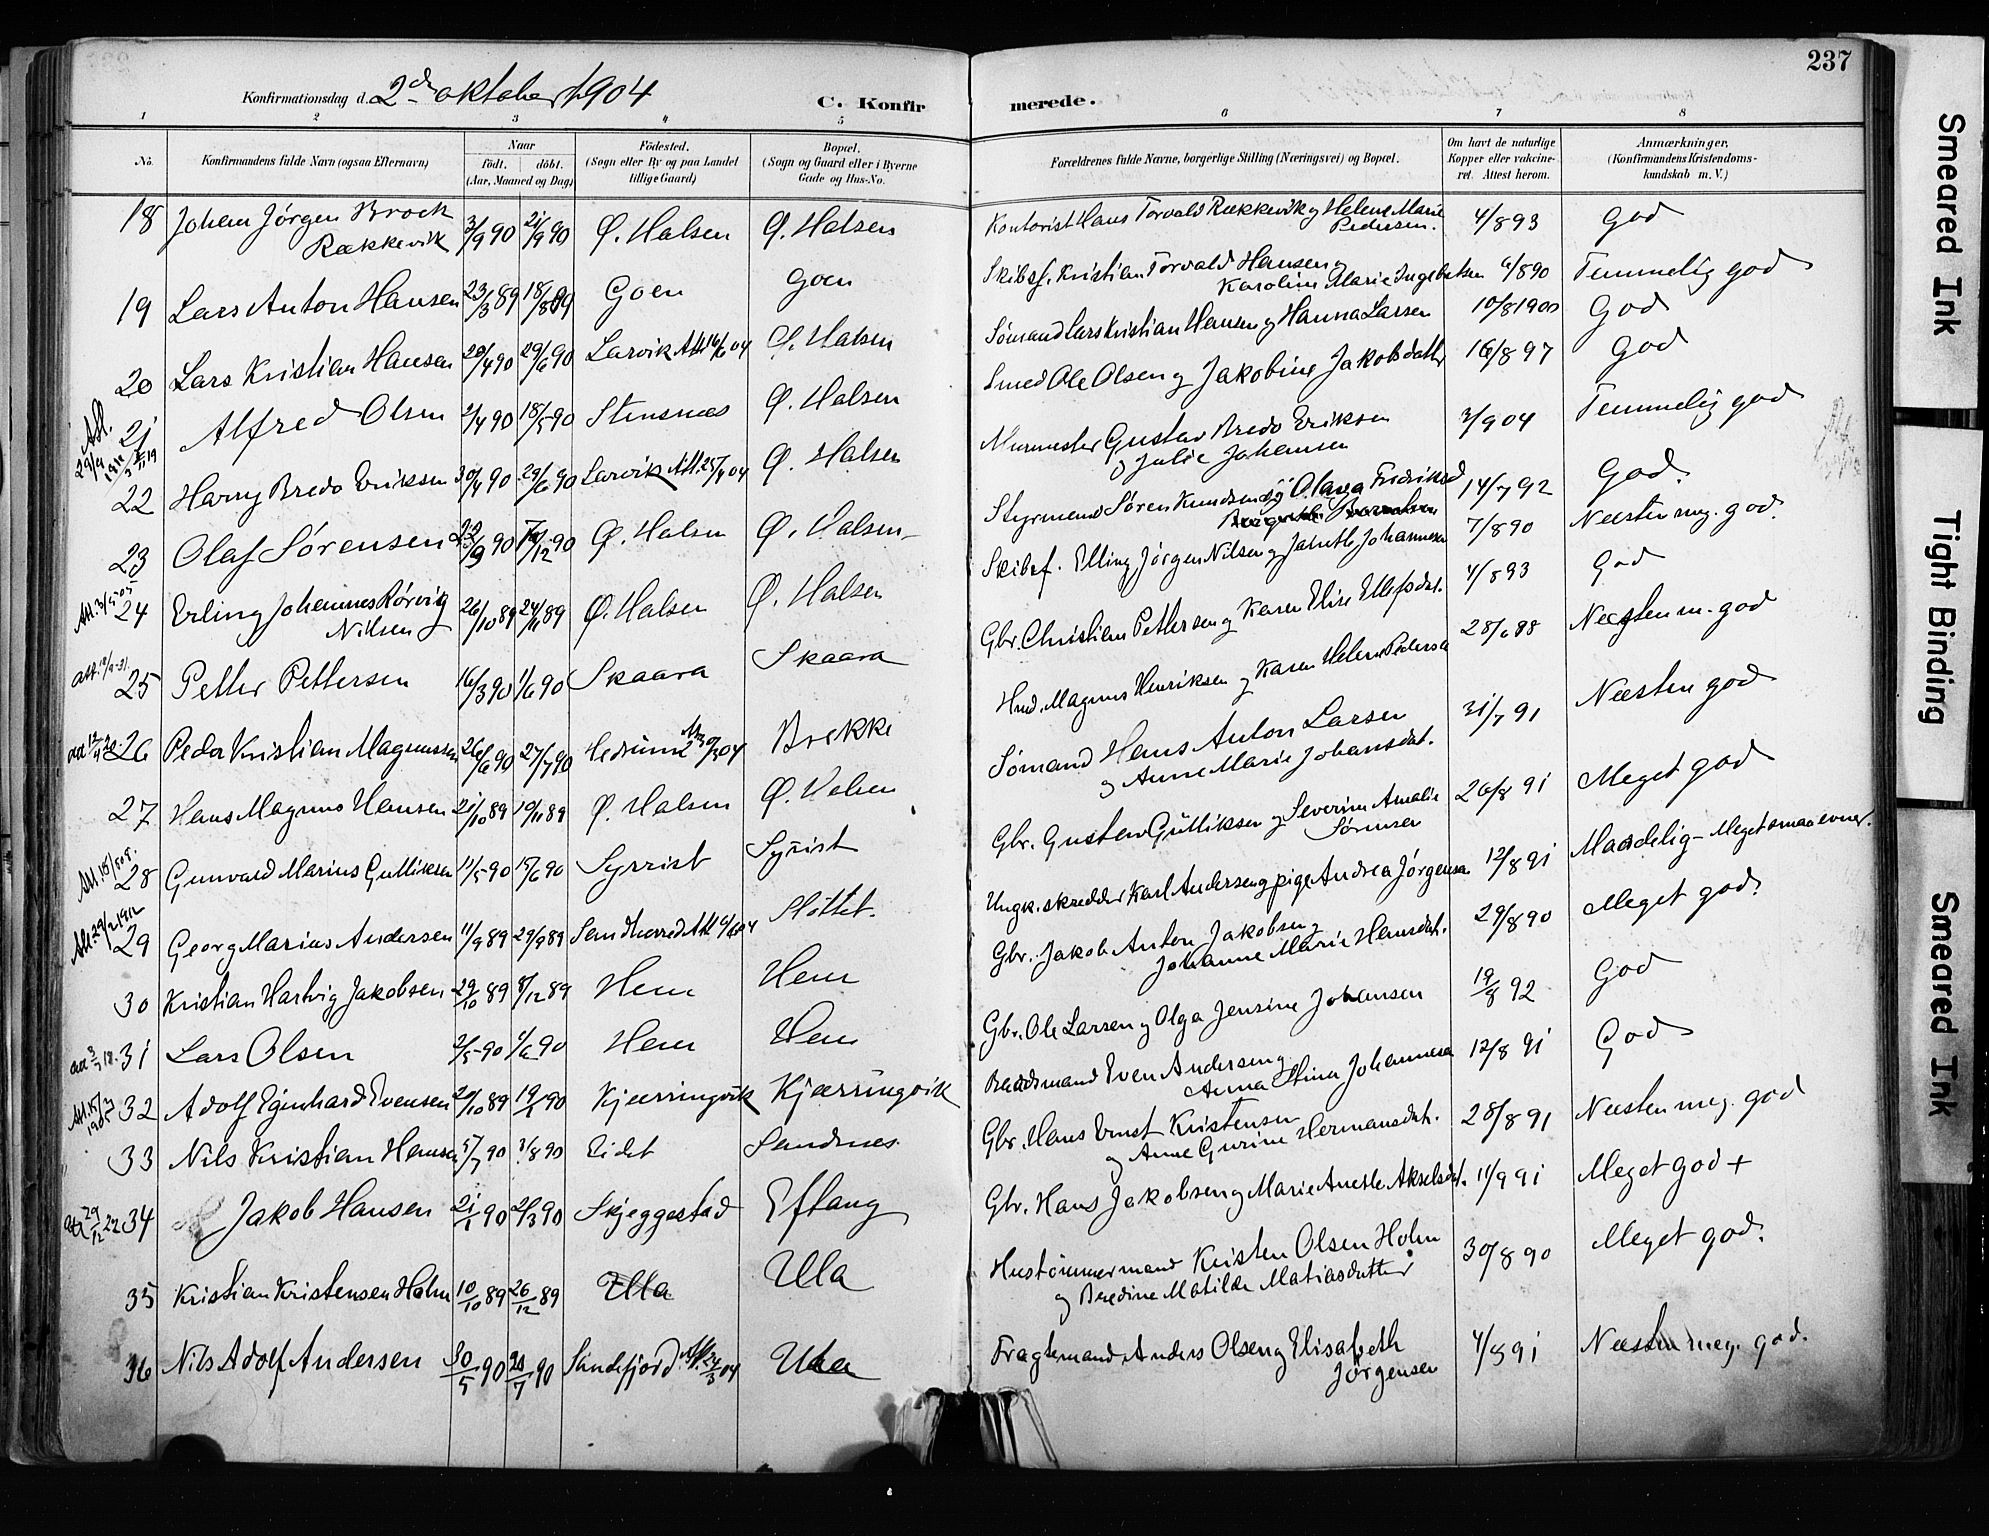 237
Konfirmationsdag d. 2den oktober 1904
C. Konfirmerede.
1 2 3 4 5 6 7 8
No. Konfirmandens fulde Navn (ogsaa Efternavn) Naar født. døbt. (Aar, Maaned og Dag) Födested. (Sogn eller By og paa Landet tillige Gaard) Bopæl. (Sogn og Gaard eller i Byerne Gade og Hus-No. Forældrenes fulde Navne, borgerlige Stilling (Næringsvei) og Bopæl. Om havt de naturlige Kopper eller vaccineret. Attest herom. Anmærkninger, (Konfirmandens Kristendomskundskab m. V.)
18 Johan Jørgen Brock Rækkevik 3/9 90 21/9 90 Ø. Halsen Ø. Halsen Kontorist Hans Torvald Rækkevik og Helene Marie Pedersen. 4/8 93 God
19 Lars Anton Hansen 23/3 89 18/8 89 Goen Goen Skibsf. Kristian Torvald Hansen og Karoline Marie Ingebretsen 6/8 90 Temmelig god
20 Lars Kristian Hansen 20/4 90 29/6 90 Larvik Att 16/6 04 Ø. Halsen Sømand Lars Kristian Hansen og Hanna Larsen 10/8 1900 God
21 Alfred Olsen 2/4 90 18/5 90 Stensnæs Ø. Halsen Smed Ole Olsen og Jakobine Jakobsdatter 16/8 97 God
22 Harry Bredo Eriksen 30/4 90 29/6 90 Larvik Att. 25/4 04 Ø. Halsen Murmester Gustav Bredo Eriksen og Julie Johansen 3/9 04 Temmelig god
23 Olaf Sørensen 22/9 90 /12 90 Ø. Halsen Ø. Halsen Styrmand Søren Knudsen og Olava Fredriksd 14/7 92 God.
Att. 3/5 05 24 Erling Johannes Rørvig Nilsen 26/10 89 24/11 89 Ø. Halsen Ø. Halsen Skibsf. Elling Jørgen Nilsen og Janette Johannesen 7/8 90 Næsten meg. god.
25 Petter Pettersen 16/3 90 1/6 90 Skaara Skaara Gbr. Christian Pettersen og Karen Elise Ellefsdat. 4/8 93 God
26 Peder Kristian Magnussen 26/6 90 27/7 90 Hedrum Brekke Hmd. Magnus Henriksen og Karen Helene Pedersen 28/6 88 Næsten m. god
27 Hans Magnus Hansen 21/10 89 10/11 89 Ø. Halsen Ø. Halsen Sømand Hans Anton Larsen og Anne Marie Johansdat. 31/7 91 Næsten god
28 Gunvald Marius Gulliksen 11/5 90 15/6 90 Syrrist Syrist Gbr. Gustav Gulliksen og Severine Amalie Sørensen 26/8 91 Meget god
Att. 29/2 1912 29 Georg Marius Andersen 11/9 89 29/9 89 Sandherred Støttet. Ungk. skrædder Karl Andersen og pige Andrea Jørgensen. 12/8 91 Maadelig - Meget smaa evner.
30 Kristian Hartvig Jakobsen 29/10 89 8/12 89 Hem Hem Gbr. Jakob Anton Jakobsen og Johanne Marie Hansdat. 29/8 90 Meget god.
31 Lars Olsen 2/5 90 1/6 90 Hem Hem Gbr. Ole Larsen og Olga Jensine Johansen 19/8 92 God
32 Adolf Eginhard Evensen 20/10 89 19/1 90 Kjærringvik Kjærringvik Baadsmand Even Andersen og Anna Stina Johannesen 12/8 91 God
33 Nils Kristian Hansen 5/7 90 3/8 90 Eidet Sandnes Gbr. Hans Ernst Kristensen og Anne Gurine Hermansdat. 28/8 91 Næsten meg. god
att 29/12 22 34 Jakob Hansen 21/1 90 2/3 90 Skjeggestad Eftang Gbr. Hans Jakobsen og Marie Anette Akselsdat. 11/9 91 Meget god +
35 Kristian Kristensen Holm 10/10 89 26/12 89 Ula Ula Hustømmermand Kristen Olsen Holm og Beredine Matilde Matiasdatter 30/8 90 Meget god.
36 Nils Adolf Andersen 30/5 90 20/7 90 Sandefjord Att. 24/3 04 Ula Fragtemand Anders Olsen og Elisabeth Jørgensen 4/8 91 Næsten meg. god.
Smeared Ink
Tight Binding
Smeared Ink